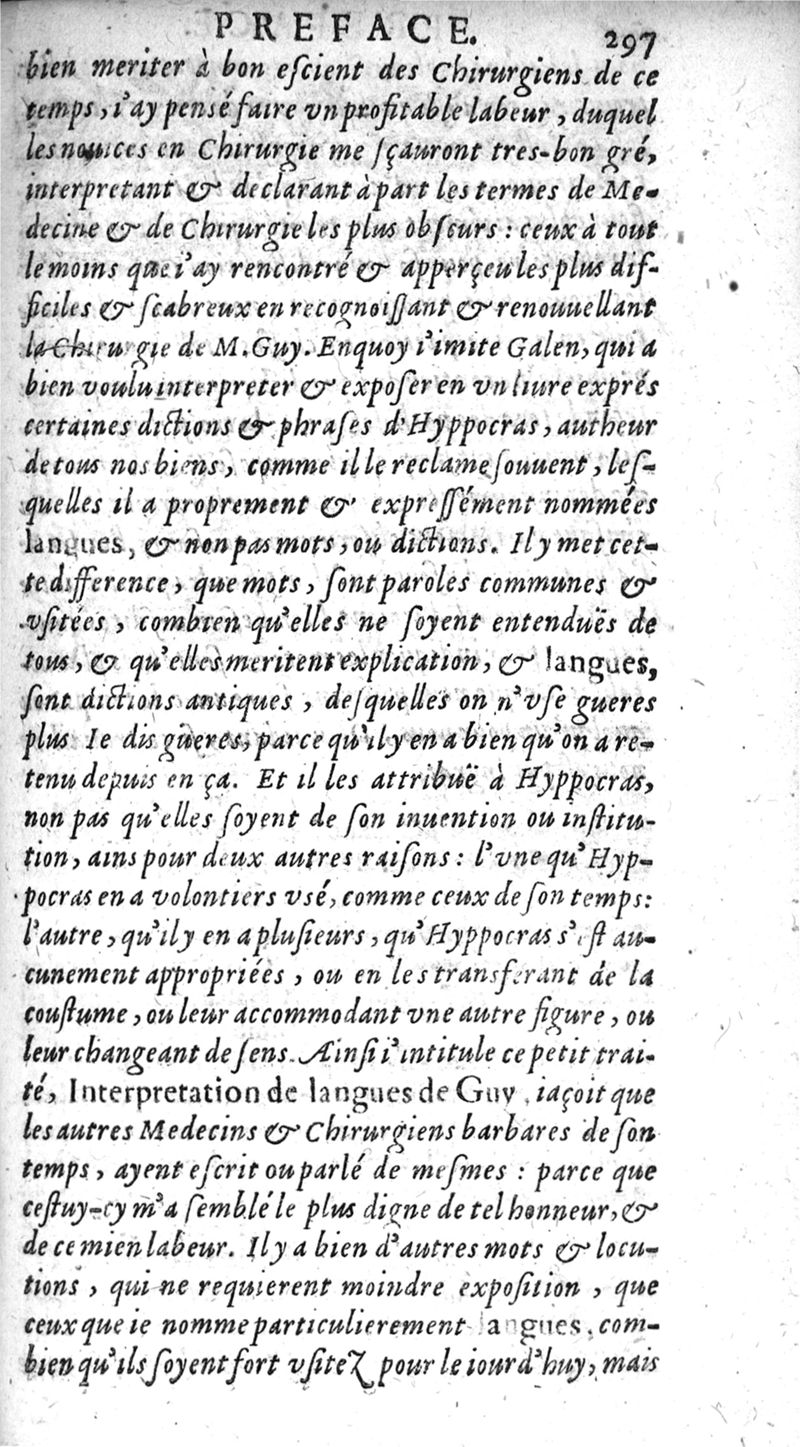 PREFACE. 297
bien meriter à bon eſcient des Chirurgiens de ce
temps, i'ay pensé faire vn profitable labeur, duquel
les nouices en Chirurgie me ſçauront tres-bon gré,
interpretant & declarant à part les termes de Me-
decine & de Chirurgie les plus obſcurs : ceux à tout
le moins que i'ay rencontré & apperçeu les plus dif-
ficiles & ſcabreux en recognoiſſant & renouuellant
la Chirurgie de M. Guy. Enquoy i'imite Galen, qui a
bien voulu interpreter & expoſer en vn liure exprés
certaines dictions & phraſes d'Hyppocras, autheur
de tous nos biens, comme il le reclame ſouuent, leſ-
quelles il a proprement & expreſſément nommées
langues, & non pas mots, ou dictions. Il y met cet-
te difference, que mots, ſont paroles communes &
vſitées, combien qu'elles ne ſoyent entenduës de
tous, & qu'elles meritent explication, & langues,
ſont dictions antiques, deſquelles on n'vſe gueres
plus Ie dis güeres, parce qu'il y en a bien qu'on a re-
tenu depuis en ça. Et il les attribuë à Hyppocras,
non pas qu'elles ſoyent de ſon inuention ou inſtitu-
tion, ains pour deux autres raiſons : l'vne qu'Hyp-
pocras en a volontiers vsé, comme ceux de ſon temps:
l'autre, qu'il y en a pluſieurs, qu'Hyppocras s'eſt au-
cunement appropriées, ou en les transferant de la
couſtume, ou leur accommodant vne autre figure, ou
leur changeant de ſens. Ainſi i'intitule ce petit trai-
té, Interpretation de langues de Guy, iaçoit que
les autres Medecins & Chirurgiens barbares de ſon
temps, ayent eſcrit ou parlé de meſmes : parce que
ceſtuy-cy m'a ſemblé le plus digne de tel honneur, &
de ce mien labeur. Il y a bien d'autres mots & locu-
tions, qui ne requierent moindre expoſition, que
ceux que ie nomme particulierement langues, com-
bien qu'ils ſoyent fort vſitez pour le iourd'huy, mais